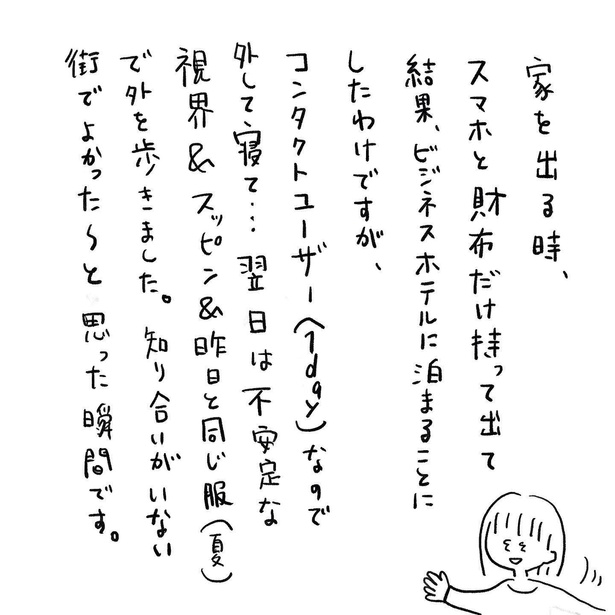 家を出る時、
スマホと財布だけ持って出て
結果、ビジネスホテルに泊まることに
したわけですが、
コンタクトユーザー(1day)なので
外して寝て…翌日は不安定な
視界&スッピン&昨日と同じ服(夏)
で外を歩きました。知り合いがいない
街でよかった〜と思った瞬間です。